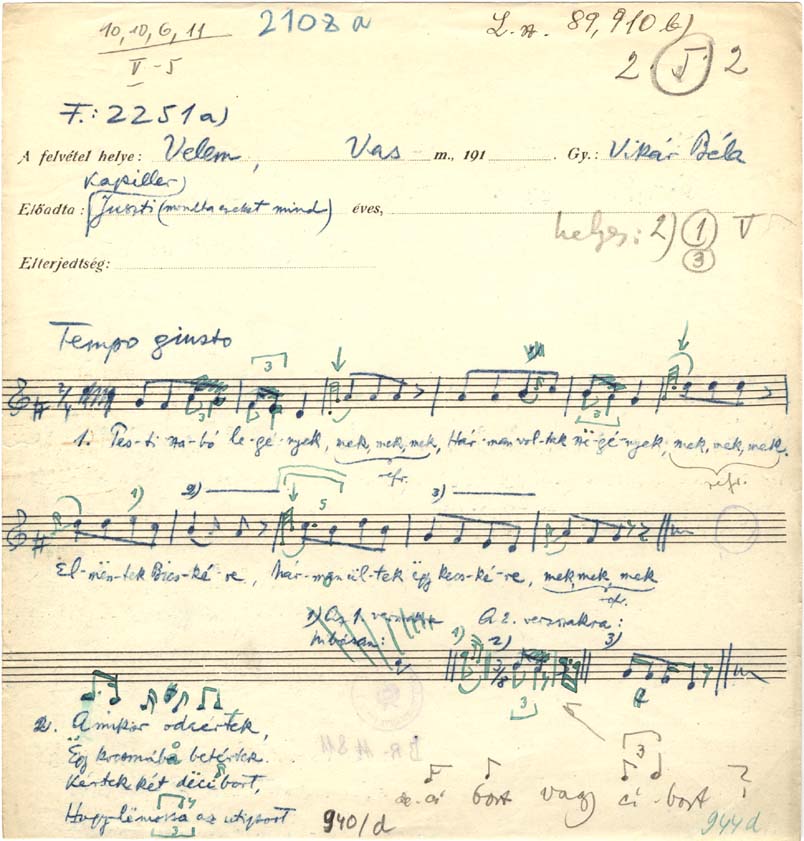 10, 10, 6, 11
V - 5
2108 a
L. sz. 89,910 b)
2. 5. 2
F.: 2251a)
A felvétel helye: Velem, Vas m., 191 . Gy.: Vikár Béla
Kapiller
Előadta: Juszti (mondta ezeket mind) éves,
helyes: 2) 1 V
3
Elterjedtség:
Tempo giusto
3
2/4
3 3
1. Pes-ti sza-bó le-gé-nyek, mek, mek, mek, Hár-man vol-tek né-gé-nyek, mek, mek, mek.
refr. refr.
1) 2) 5 3)
El-mën-tek Bics-ké-re, hár-man ül-tek ëgy kecs-ké-re, mek, mek, mek
refr.
1) Az 1. A 2. versszakra:
hibásan: 1) 2) 3)
3/8
3
2. Amikor odaértek,
Ëgy kocsmába betértek.
Kértek két deci bort,
Hogy lëmossa az utiport
2
3
de-ci bort vagy ci-bort ?
940/d
944d